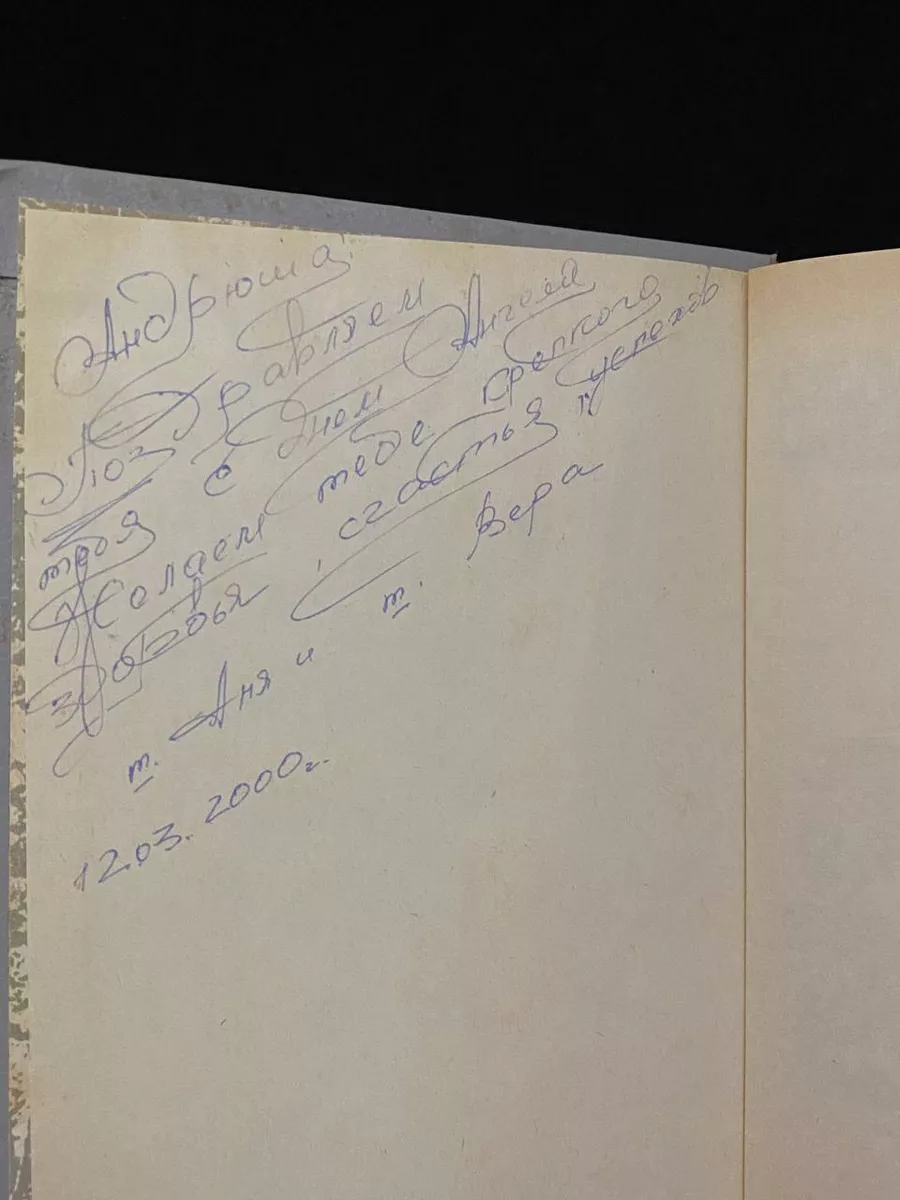 Андрюша!
Поздравляем
тебя с Днем Ангела
Желаем тебе крепкого
здоровья, счастья, успехов
т. Аня и т. Вера
12.03.2000г.